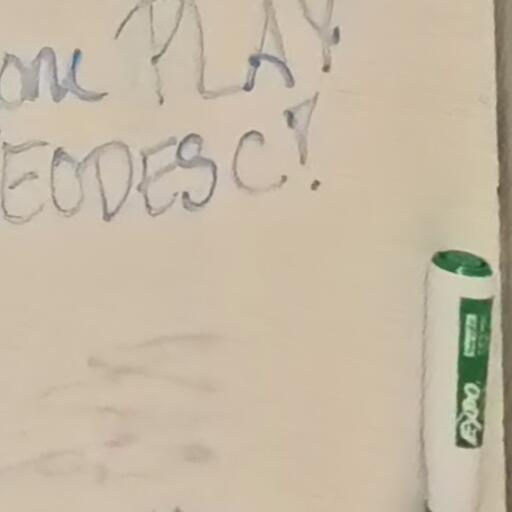 one PLAY!
EODESC!
EXPO